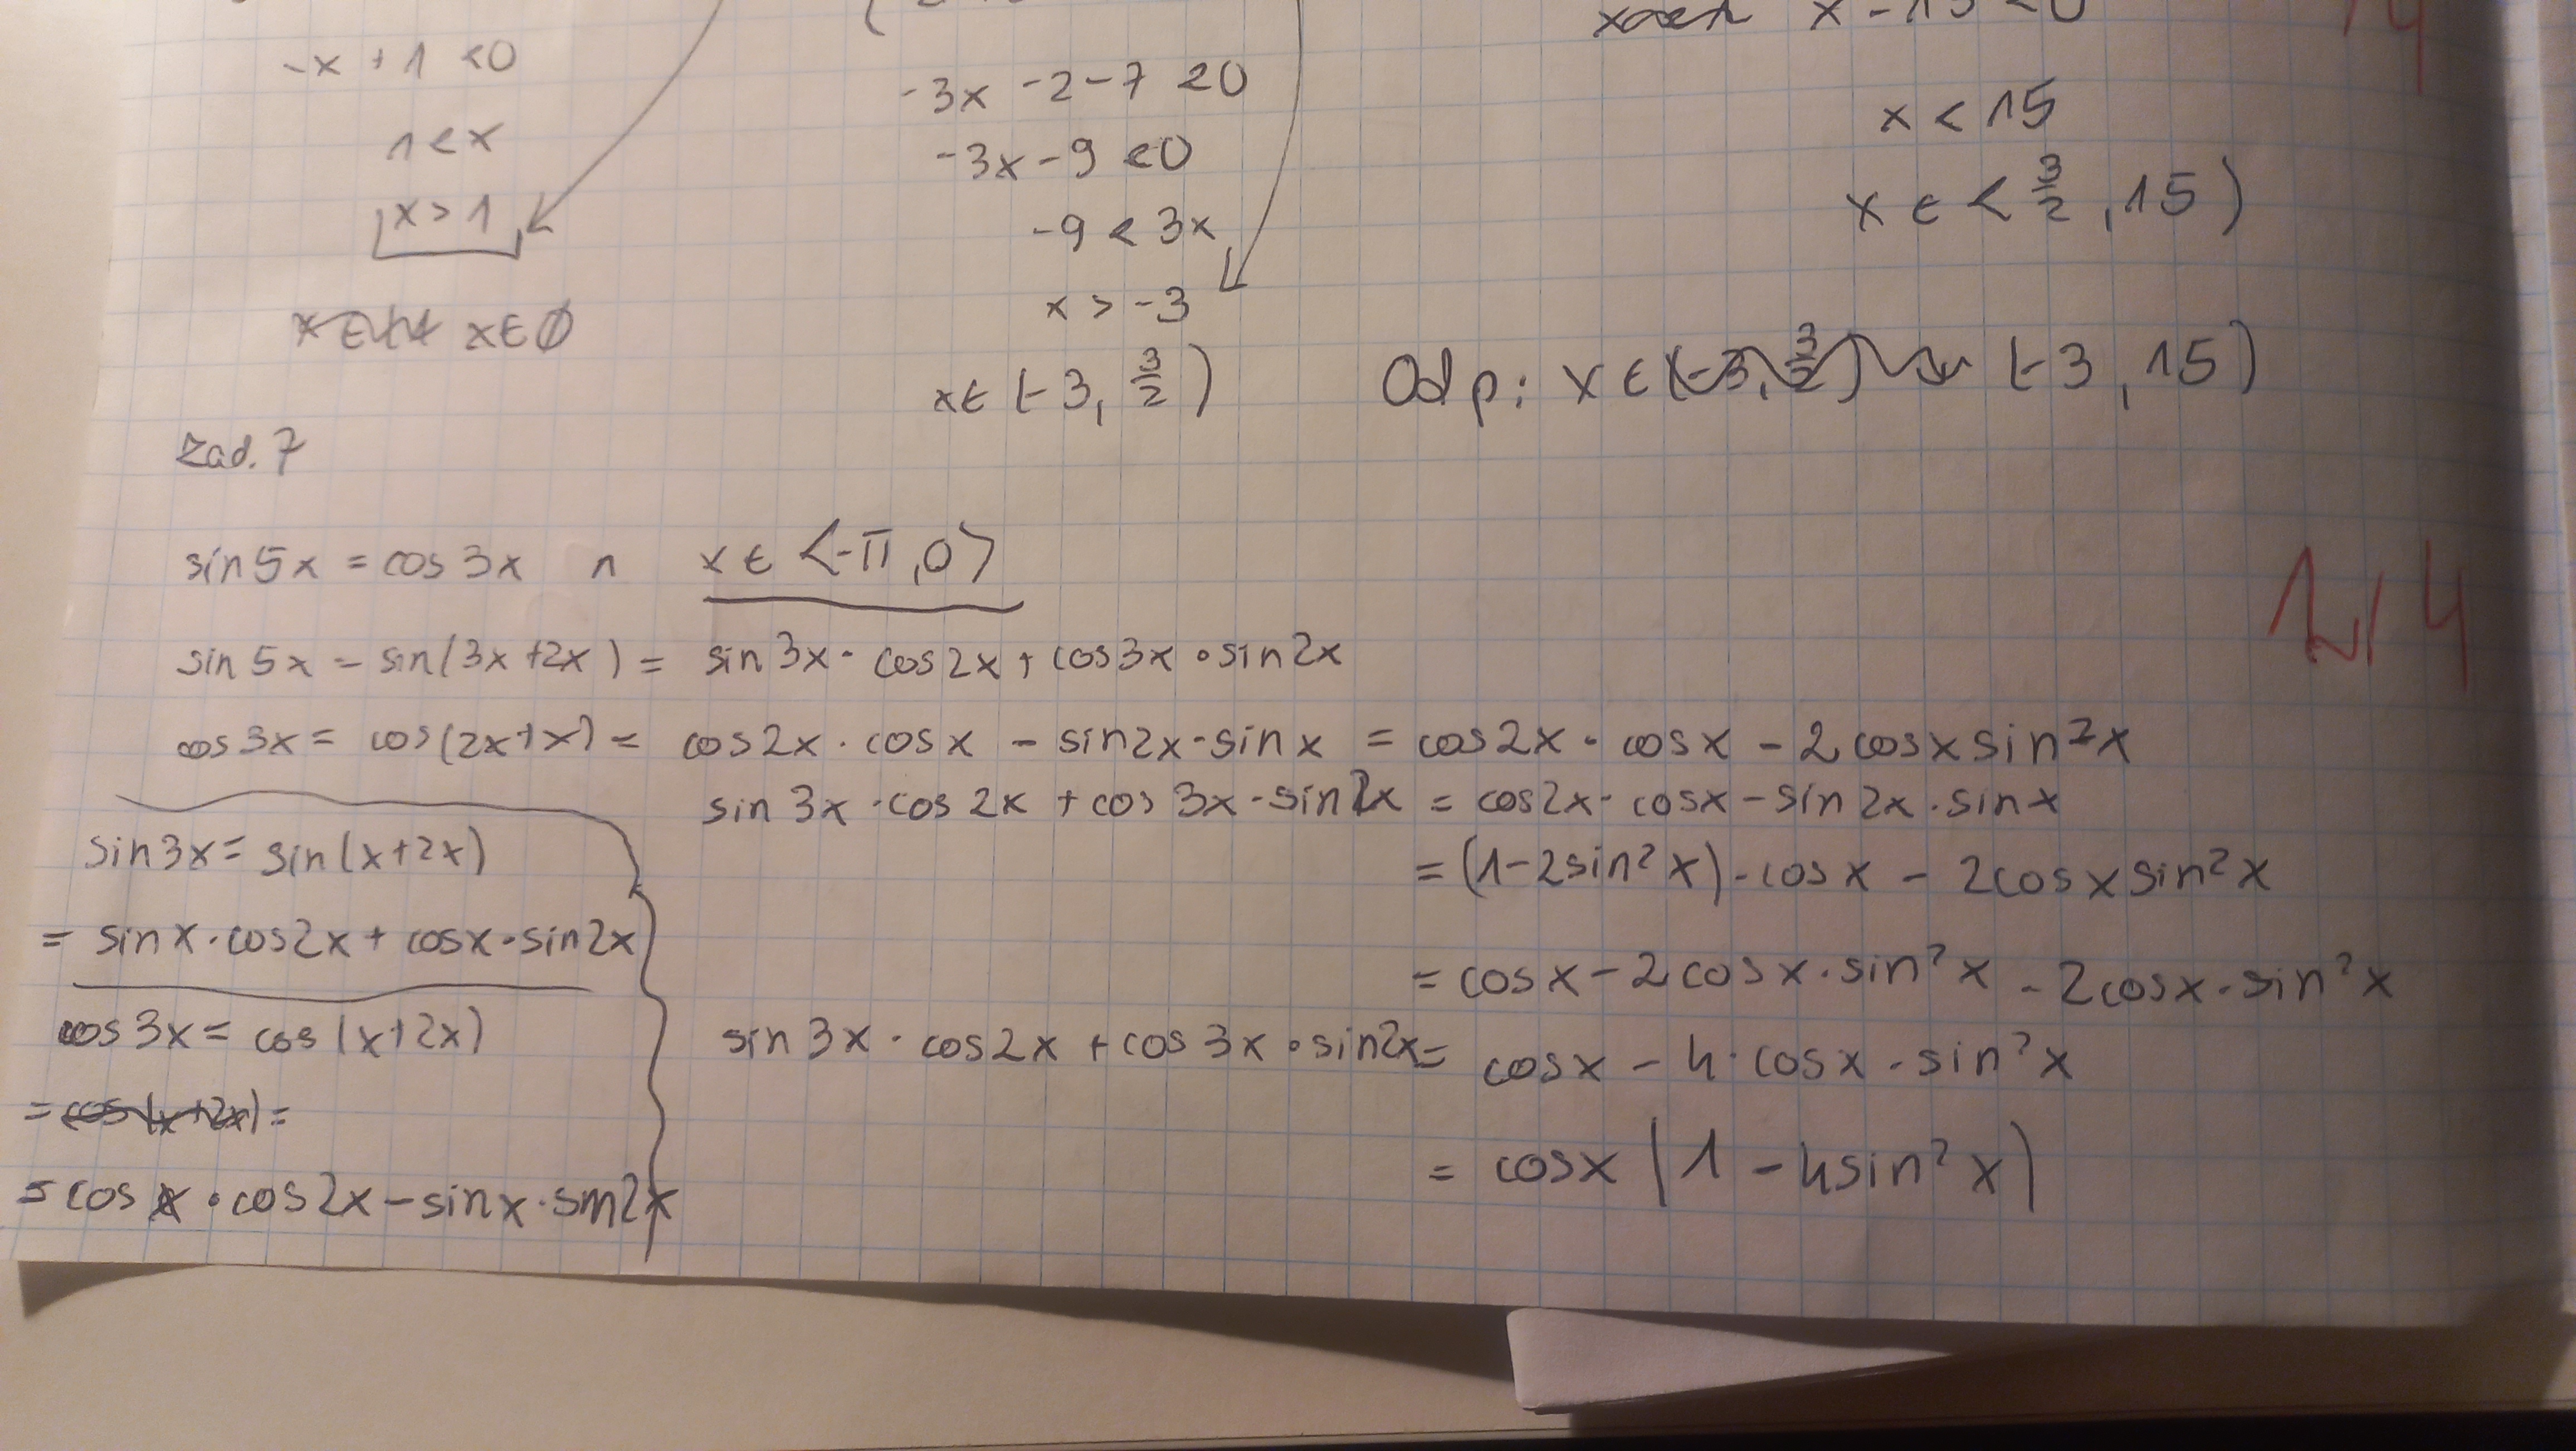 -x + 1 < 0
1 < x
x > 1
x ∈ ∅
-3x - 2 - 7 < 0
-3x - 9 < 0
-9 < 3x
x > -3
x ∈ (-3, 3/2)
x - 15 < 0
x < 15
x ∈ < 3/2 , 15)
Odp: x ∈ (-3, 3/2) (-3, 15)
Zad. 7
sin 5x = cos 3x ∧ x ∈ <-π, 0>
sin 5x = sin(3x + 2x) = sin 3x · cos 2x + cos 3x · sin 2x
cos 3x = cos(2x + x) = cos 2x · cos x - sin 2x · sin x = cos 2x · cos x - 2 cos x sin² x
sin 3x · cos 2x + cos 3x · sin 2x = cos 2x · cos x - sin 2x · sin x
= (1 - 2 sin² x) · cos x - 2 cos x sin² x
= cos x - 2 cos x · sin² x - 2 cos x · sin² x
sin 3x · cos 2x + cos 3x · sin 2x = cos x - 4 · cos x · sin² x
= cos x (1 - 4 sin² x)
sin 3x = sin(x + 2x)
= sin x · cos 2x + cos x · sin 2x
cos 3x = cos(x + 2x)
= cos(x + 2x) =
= cos x · cos 2x - sin x · sin 2x
4